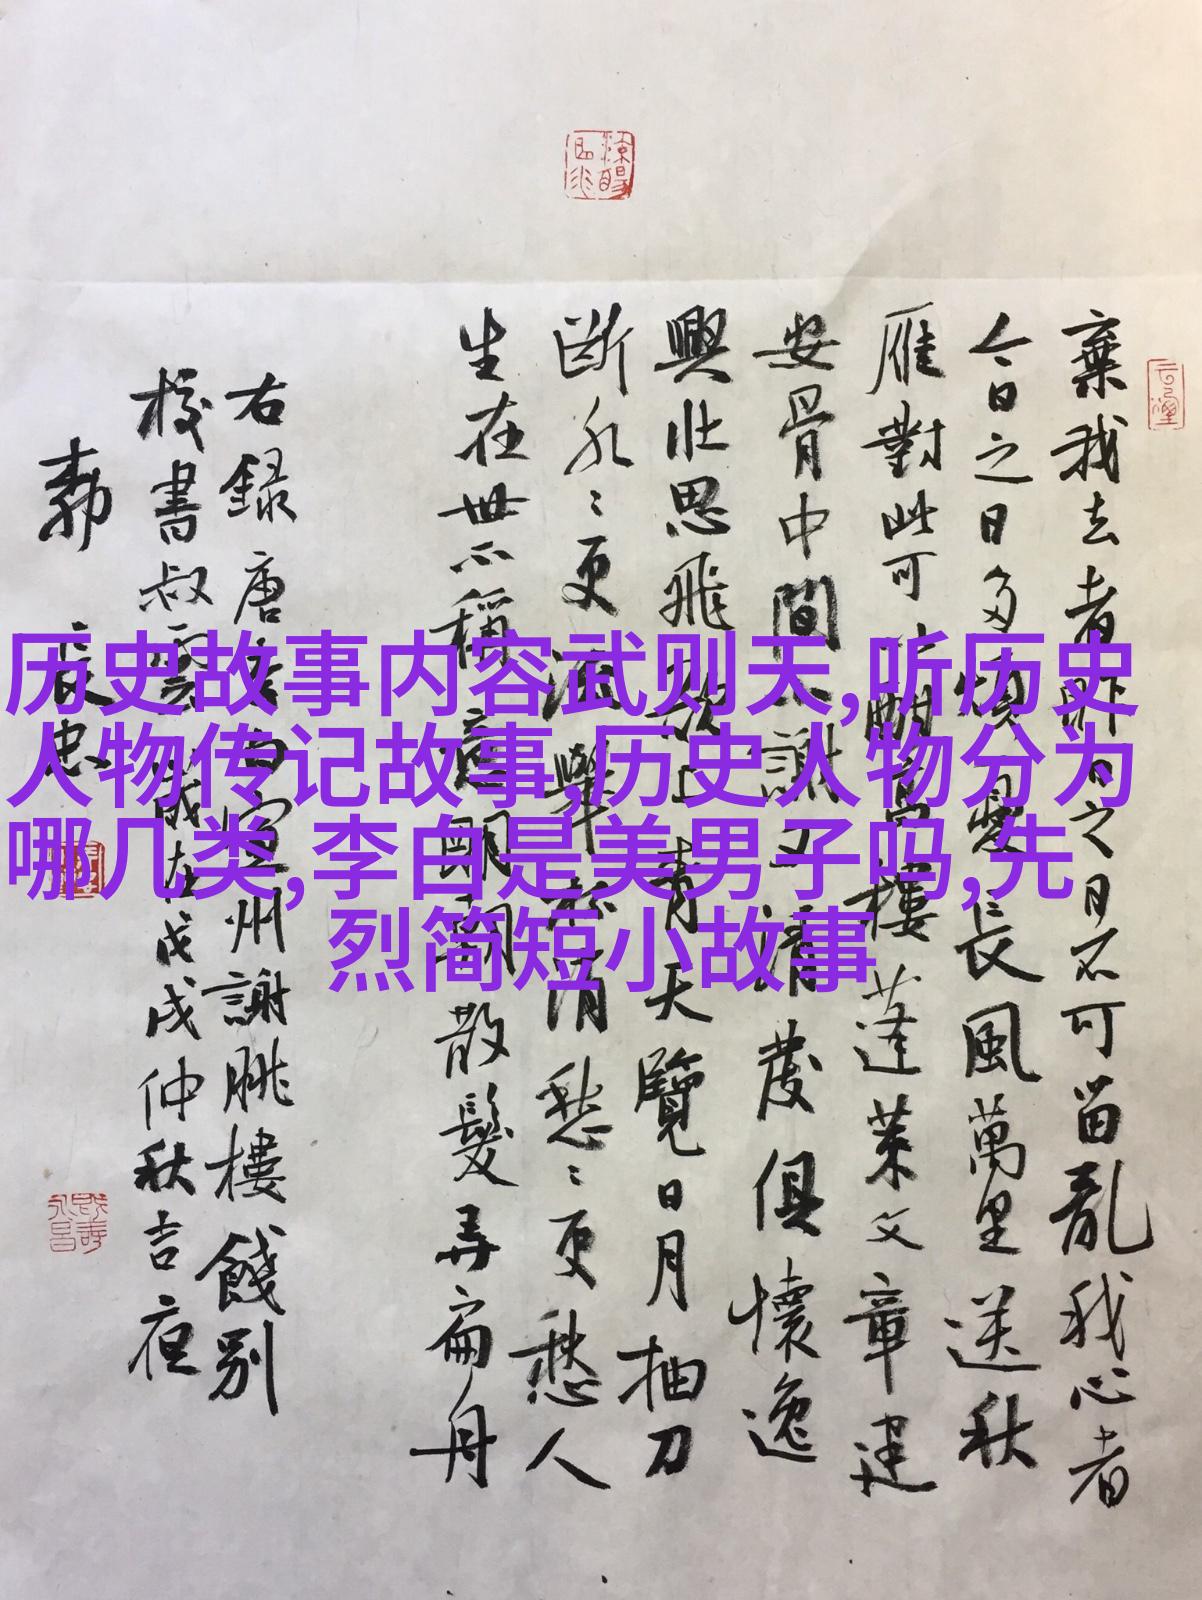 历史故事内容武则天,听历史
人物传记故事,历史人物分为
哪几类,李白是美男子吗,先
烈简短小故事
棄我去者昨日之日不可留亂我心者
今日之日多煩憂長風萬里送秋
雁對此可以酣高樓蓬莱文章建
安骨中間小謝又清發俱懷逸
興壯思飛欲上青天覽日月抽刀
断水〻更流舉杯消愁〻更愁人
生在世不稱意明朝散髮弄扁舟
右録唐李白宣州謝朓樓餞别
校書叔雲歲在戊戌仲秋吉夜
長忠